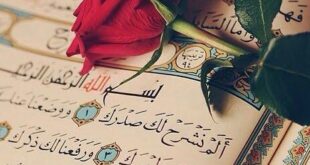 وَأَمَّا
بِسْمِ اللَّهِ الرَّحْمَٰنِ الرَّحِيمِ
أَلَمْ نَشْرَحْ لَكَ صَدْرَكَ ١ وَوَضَعْنَا
وَرَفَعْنَا لَكَ ذِكْرَكَ